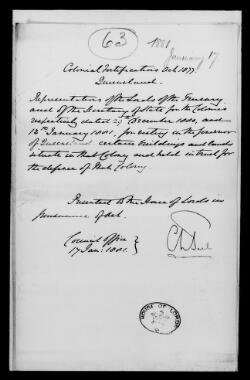 63
1881
January 17
Colonial Fortifications Act 1877
Queensland.
Representations of the Lords of the Treasury
and of the Secretary of State for the Colonies
respectively dated 29 December 1880, and
13th January 1881, for vesting in the Governor
of Queensland certain buildings and lands
situate in that Colony and held in trust for
the defence of that Colony
Presented to the House of Lords in
pursuance of Act.
Council Office
17 Jan: 1881.
HOUSE OF LORDS